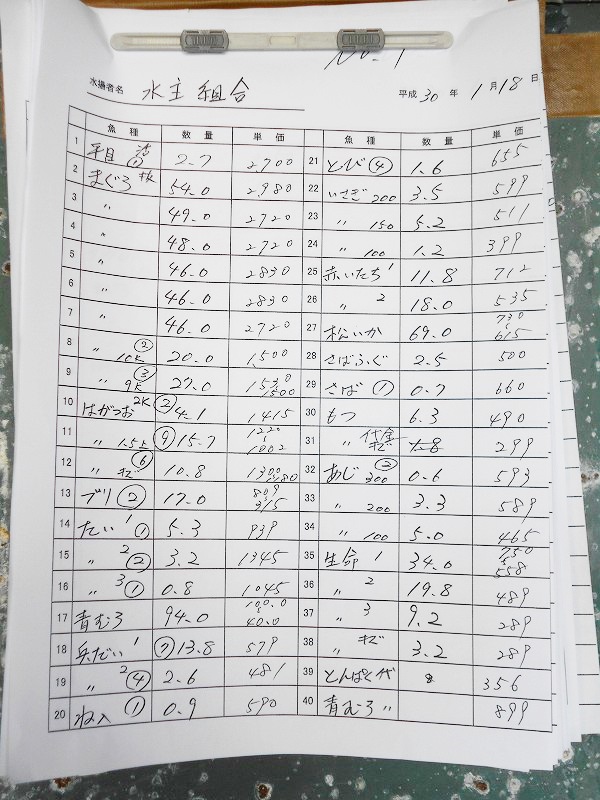 No. 1
水揚者名 水主組合
平成 30 年 1月 18 日
魚種 数量 単価
1 平目 活 ① 2.7 2,700
2 まぐろ 54.0 2980
3 〃 49.0 2720
4 〃 48.0 2720
5 〃 46.0 2830
6 〃 46.0 2830
7 〃 46.0 2720
8 〃 10K ② 20.0 1,500
9 〃 9K ③ 27.0 1530 1500
10 はがつお 2K ② 4.1 1415
11 〃 1.5K ⑨ 15.7 1220 1002
12 〃 キズ ⑥ 10.8 1300
13 ブリ ② 17.0 809 315
14 たい 1 ① 5.3 939
15 〃 2 ② 3.2 1345
16 〃 3 ① 0.8 1045
17 青むろ 94.0 100.0 40.0
18 兵だい 1 ⑦ 13.8 579
19 〃 2 ④ 2.6 481
20 ① 0.9 590
魚種 数量 単価
21 とび ④ 1.6 655
22 いさぎ 200 3.5 599
23 〃 150 5.2 511
24 〃 100 1.2 399
25 赤いたち 1 11.8 712
26 〃 2 18.0 535
27 松いか 69.0 730 615
28 さばふぐ 2.5 500
29 さば ① 0.7 660
30 もつ 6.3 490
31 〃 キズ 299
32 あじ 300 ② 0.6 593
33 〃 200 3.3 589
34 〃 100 5.0 465
35 生命 1 34.0 750 558
36 〃 2 19.8 489
37 〃 3 9.2 289
38 〃 キズ 3.2 289
39 とんぱく代 356
40 青むろ 〃 899